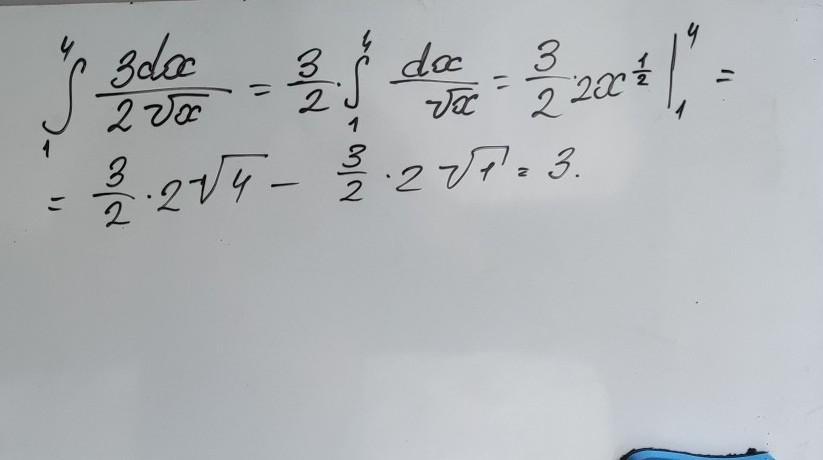 ∫₁⁴ 3dx/(2√x) = 3/2 · ∫₁⁴ dx/√x = 3/2 · 2x^(1/2) |₁⁴ =
= 3/2 · 2√4 − 3/2 · 2√1 = 3.